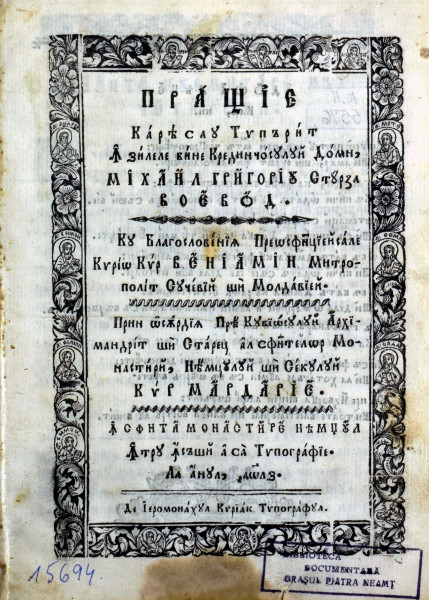 ПРА́ЩІЕ
Каре́сау Типъри́т
Ꙟ зи́леле би́не Крединчо́сулуй До́мн,
МІХАИ́Л ГРИГО́РІꙋ Стꙋ́рза
ВОЕВѠ́Д.
Кꙋ Благослове́нїѧ Преѡсфинці́ей са́ле
Кѵ́рїѡ Кѵ́р ВЕНІАМІ́Н Митро-
поли́т Сꙋче́вїй шѝ Молда́вїеѝ.
При́н ѡ̑сѫ́рдїѧ Пре́ Кꙋвїѡ́сꙋлꙋй Архі-
мандри́т шѝ Ста́рец ал сфи́нтелѡр Мо-
насти́рѝ, Нѣ́мцꙋлꙋй шѝ Се́кꙋлꙋй
КѴ́Р МАРДА́РІЕ.
Ꙟ СФѪНТА МОНАСТИ́РЕ НѢ́МЦꙊЛ
Ꙟтрꙋ Ꙟсъшѝ а са̀ Типогра́фїе.
Ла а́нꙋл, ҂аѡлз.
Де Іеромона́хꙋл Кѵрїа́к Типогра́фꙋл.
BIBLIOTECA
DOCUMENTARA
ORAȘUL PIATRA NEAMȚ
15694.